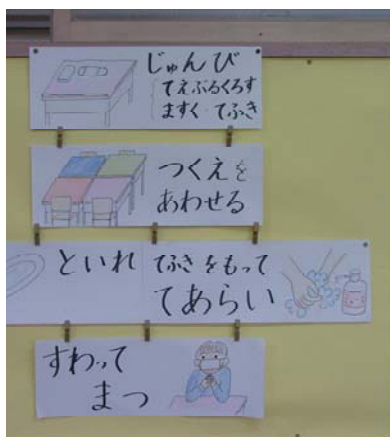 じゅんび
てえぶるくろす
ますく・てふき
つくえを
あわせる
といれ
てふきをもって
てあらい
すわって
まつ